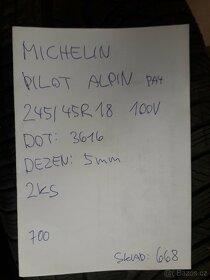 MICHELIN
PILOT ALPIN PA4
245/45R18 100V
DOT: 3616
DEZEN: 5mm
2KS
700
SKLAD: 668